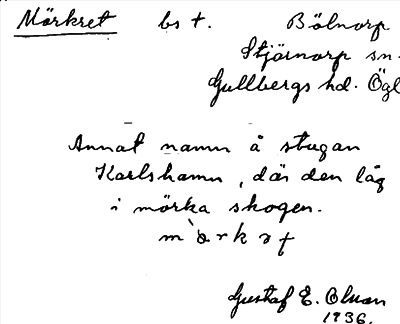 Mörkret bs t. Bölnorp
Stjärnorp sn.
Gullbergs hd. Ögl
Annat namn å stugan
Karlshamn, där den låg
i mörka skogen.
Gustaf E. Olsson
1936.